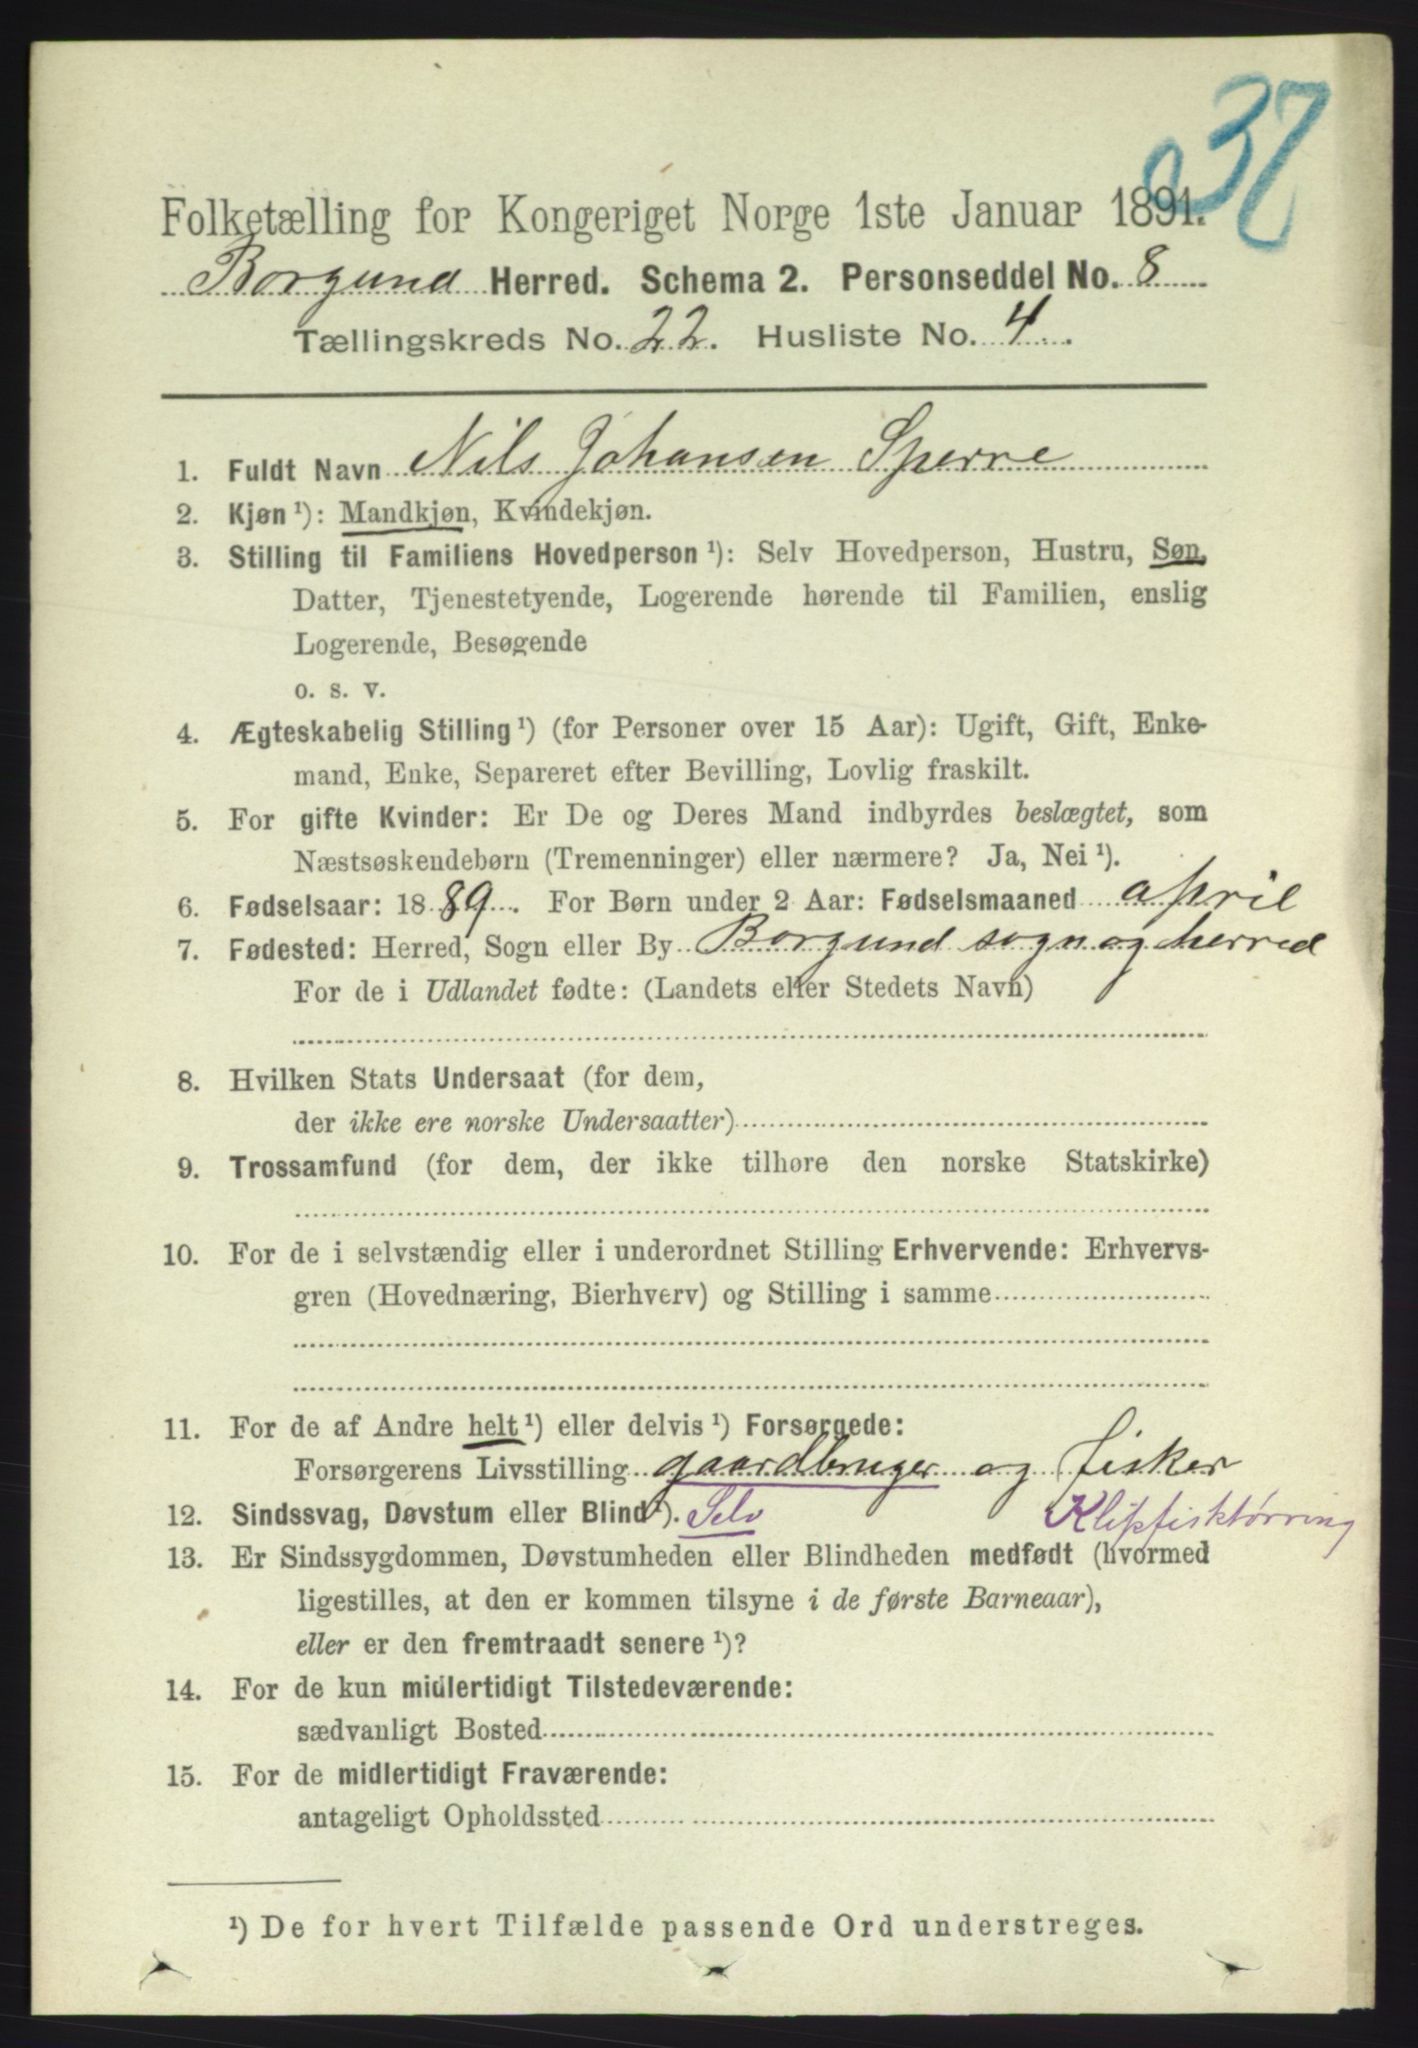 37
Folketælling for Kongeriget Norge 1ste Januar 1891.
Borgund Herred. Schema 2. Personseddel No. 8
Tællingskreds No. 22. Husliste No. 4.
1. Fuldt Navn Nils Johansen Sperre
2. Kjøn ¹): Mandkjøn, Kvindekjøn.
3. Stilling til Familiens Hovedperson ¹): Selv Hovedperson, Hustru, Søn,
Datter, Tjenestetyende, Logerende hørende til Familien, enslig
Logerende, Besøgende
o. s. v.
4. Ægteskabelig Stilling ¹) (for Personer over 15 Aar): Ugift, Gift, Enke-
mand, Enke, Separeret efter Bevilling, Lovlig fraskilt.
5. For gifte Kvinder: Er De og Deres Mand indbyrdes beslægtet, som
Næstsøskendebørn (Tremenninger) eller nærmere? Ja, Nei ¹).
6. Fødselsaar: 1889. For Børn under 2 Aar: Fødselsmaaned april
7. Fødested: Herred, Sogn eller By Borgund sogn og herred
For de i Udlandet fødte: (Landets eller Stedets Navn)
8. Hvilken Stats Undersaat (for dem,
der ikke ere norske Undersaatter)
9. Trossamfund (for dem, der ikke tilhøre den norske Statskirke)
10. For de i selvstændig eller i underordnet Stilling Erhvervende: Erhvervs-
gren (Hovednæring, Bierhverv) og Stilling i samme
11. For de af Andre helt ¹) eller delvis ¹) Forsørgede:
Forsørgerens Livsstilling gaardbruger og fisker
12. Sindssvag, Døvstum eller Blind ¹). Selv Klipfisktørring
13. Er Sindssygdommen, Døvstumheden eller Blindheden medfødt (hvormed
ligestilles, at den er kommen tilsyne i de første Barneaar),
eller er den fremtraadt senere ¹)?
14. For de kun midlertidigt Tilstedeværende:
sædvanligt Bosted
15. For de midlertidigt Fraværende:
antageligt Opholdssted
¹) De for hvert Tilfælde passende Ord understreges.